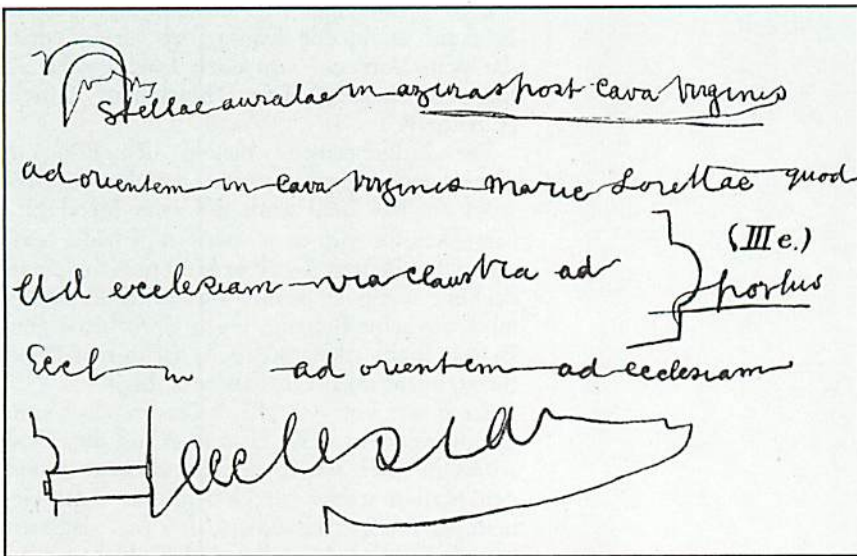 Stellae auratae in azuras post Cava Virginis
ad orientem in Cava Virginis Marie Lorettae quod
ad ecclesiam via claustra ad
(III e.)
portus
Eccl m ad orientem ad ecclesiam
ecclesia